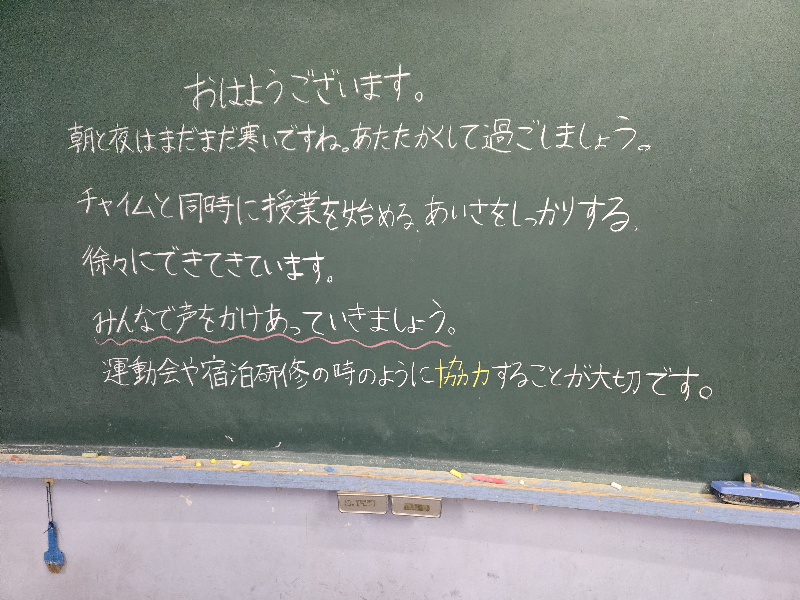 おはようございます。
朝と夜はまだまだ寒いですね。あたたかくして過ごしましょう。
チャイムと同時に授業を始める、あいさをしっかりする、
徐々にできてきています。
みんなで声をかけあっていきましょう。
運動会や宿泊研修の時のように協力することが大切です。